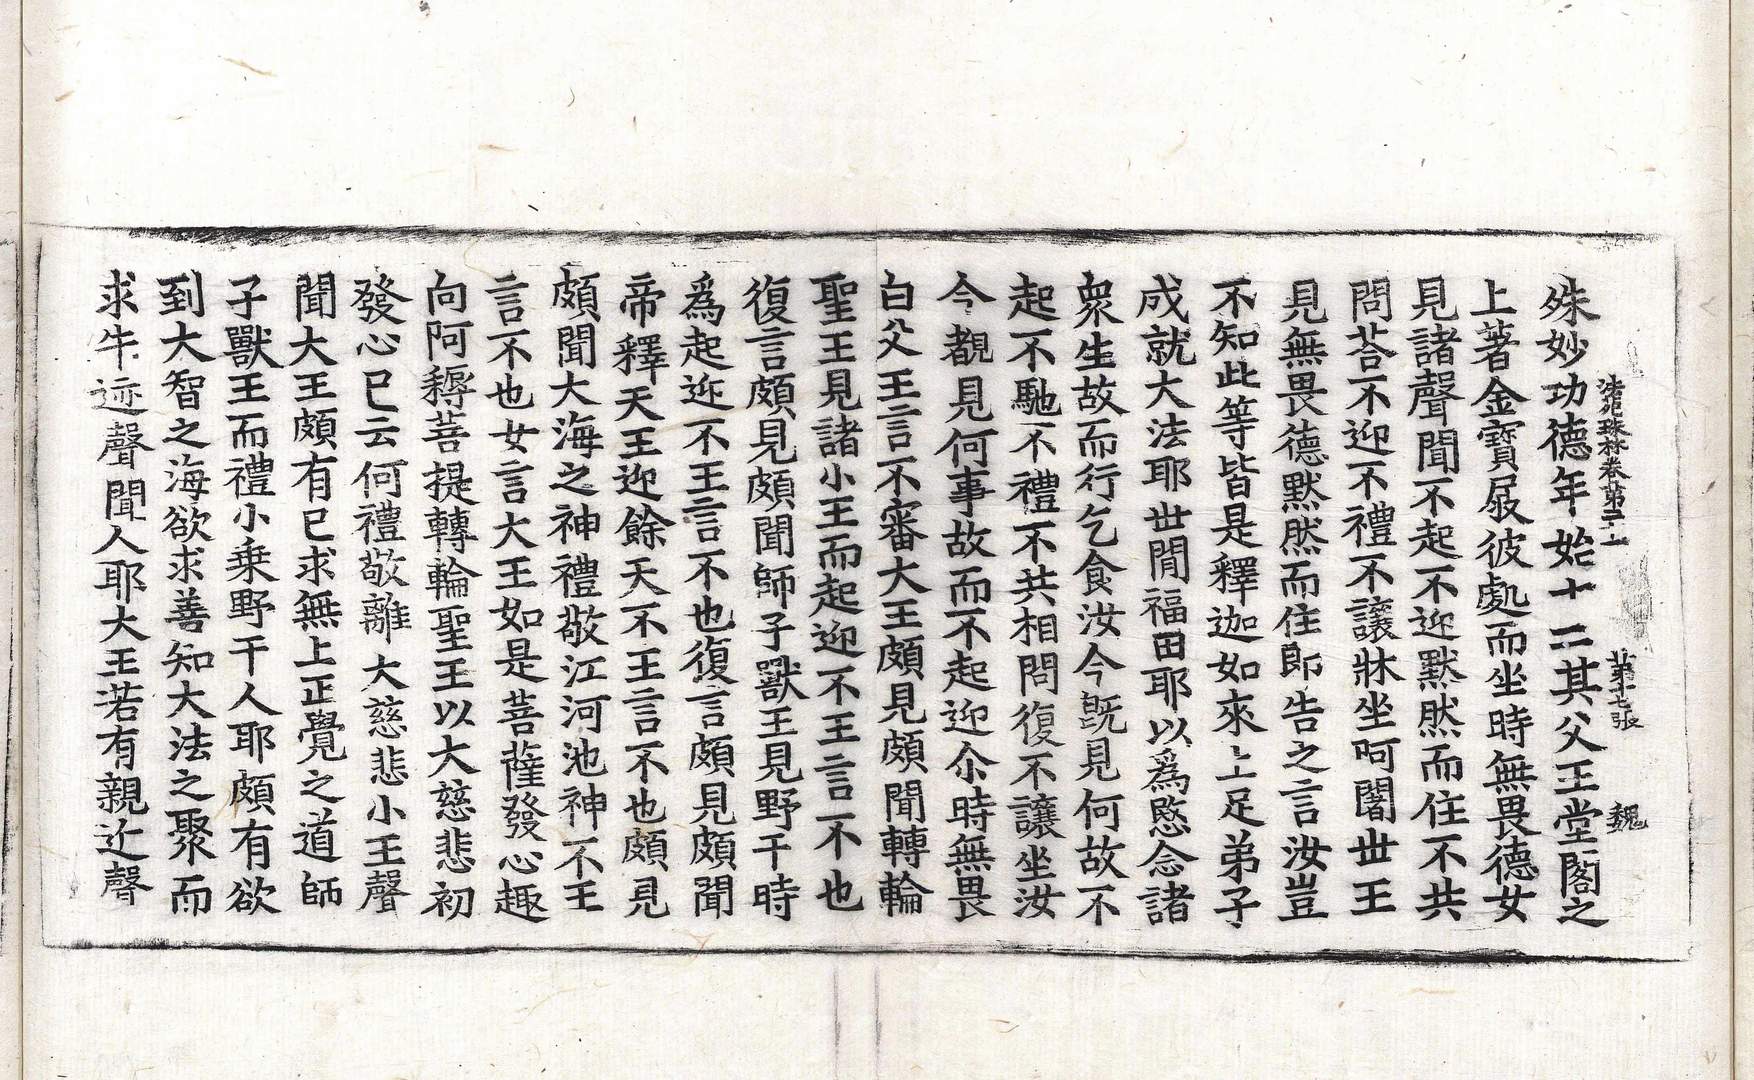 法苑珠林卷第二十一 第十七張 魏
殊妙功德年始十二其父王堂閣之
上著金寶屐彼處而坐時無畏德女
見諸聲聞不起不迎默然而住不共
問荅不迎不禮不讓牀坐阿闍世王
見無畏德默然而住即告之言汝豈
不知此等皆是釋迦如來上足弟子
成就大法耶世間福田耶以為愍念諸
衆生故而行乞食汝今既見何故不
起不馳不禮不共相問復不讓坐汝
今覩見何事故而不起迎尒時無畏
白父王言不審大王頗見頗聞轉輪
聖王見諸小王而起迎不王言不也
復言頗見頗聞師子獸王見野干時
為起迎不王言不也復言頗見頗聞
帝釋天王迎餘天不王言不也頗見
頗聞大海之神禮敬江河池神不王
言不也女言大王如是菩薩發心趣
向阿耨菩提轉輪聖王以大慈悲初
發心已云何禮敬離大慈悲小王聲
聞大王頗有已求無上正覺之道師
子獸王而禮小乗野干人耶頗有欲
到大智之海欲求善知大法之聚而
求牛迹聲聞人耶大王若有親近聲